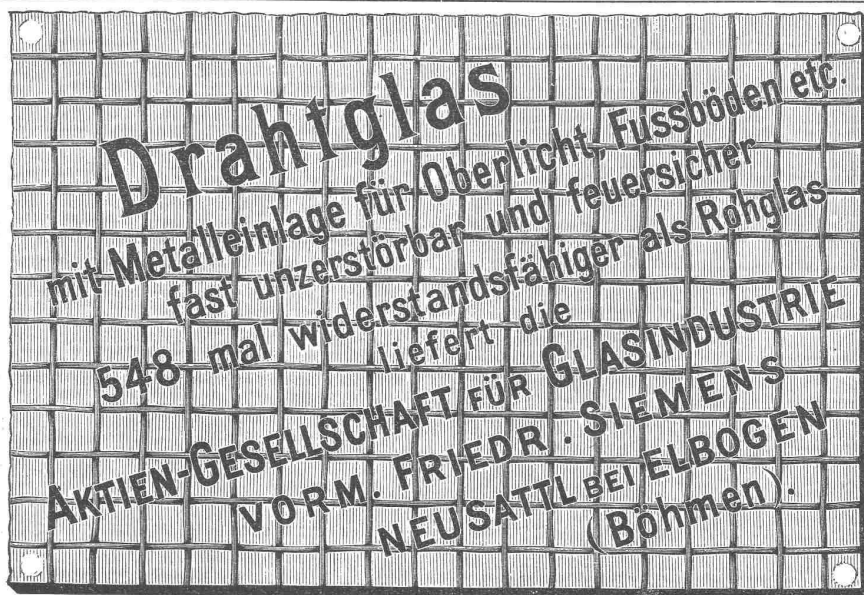 Drahtglas
mit Metalleinlage für Oberlicht, Fussböden etc.
fast unzerstörbar und feuersicher
548 mal widerstandsfähiger als Rohglas
liefert die
AKTIEN-GESELLSCHAFT FÜR GLASINDUSTRIE
VORM. FRIEDR. SIEMENS
NEUSATTL BEI ELBOGEN
(Böhmen).